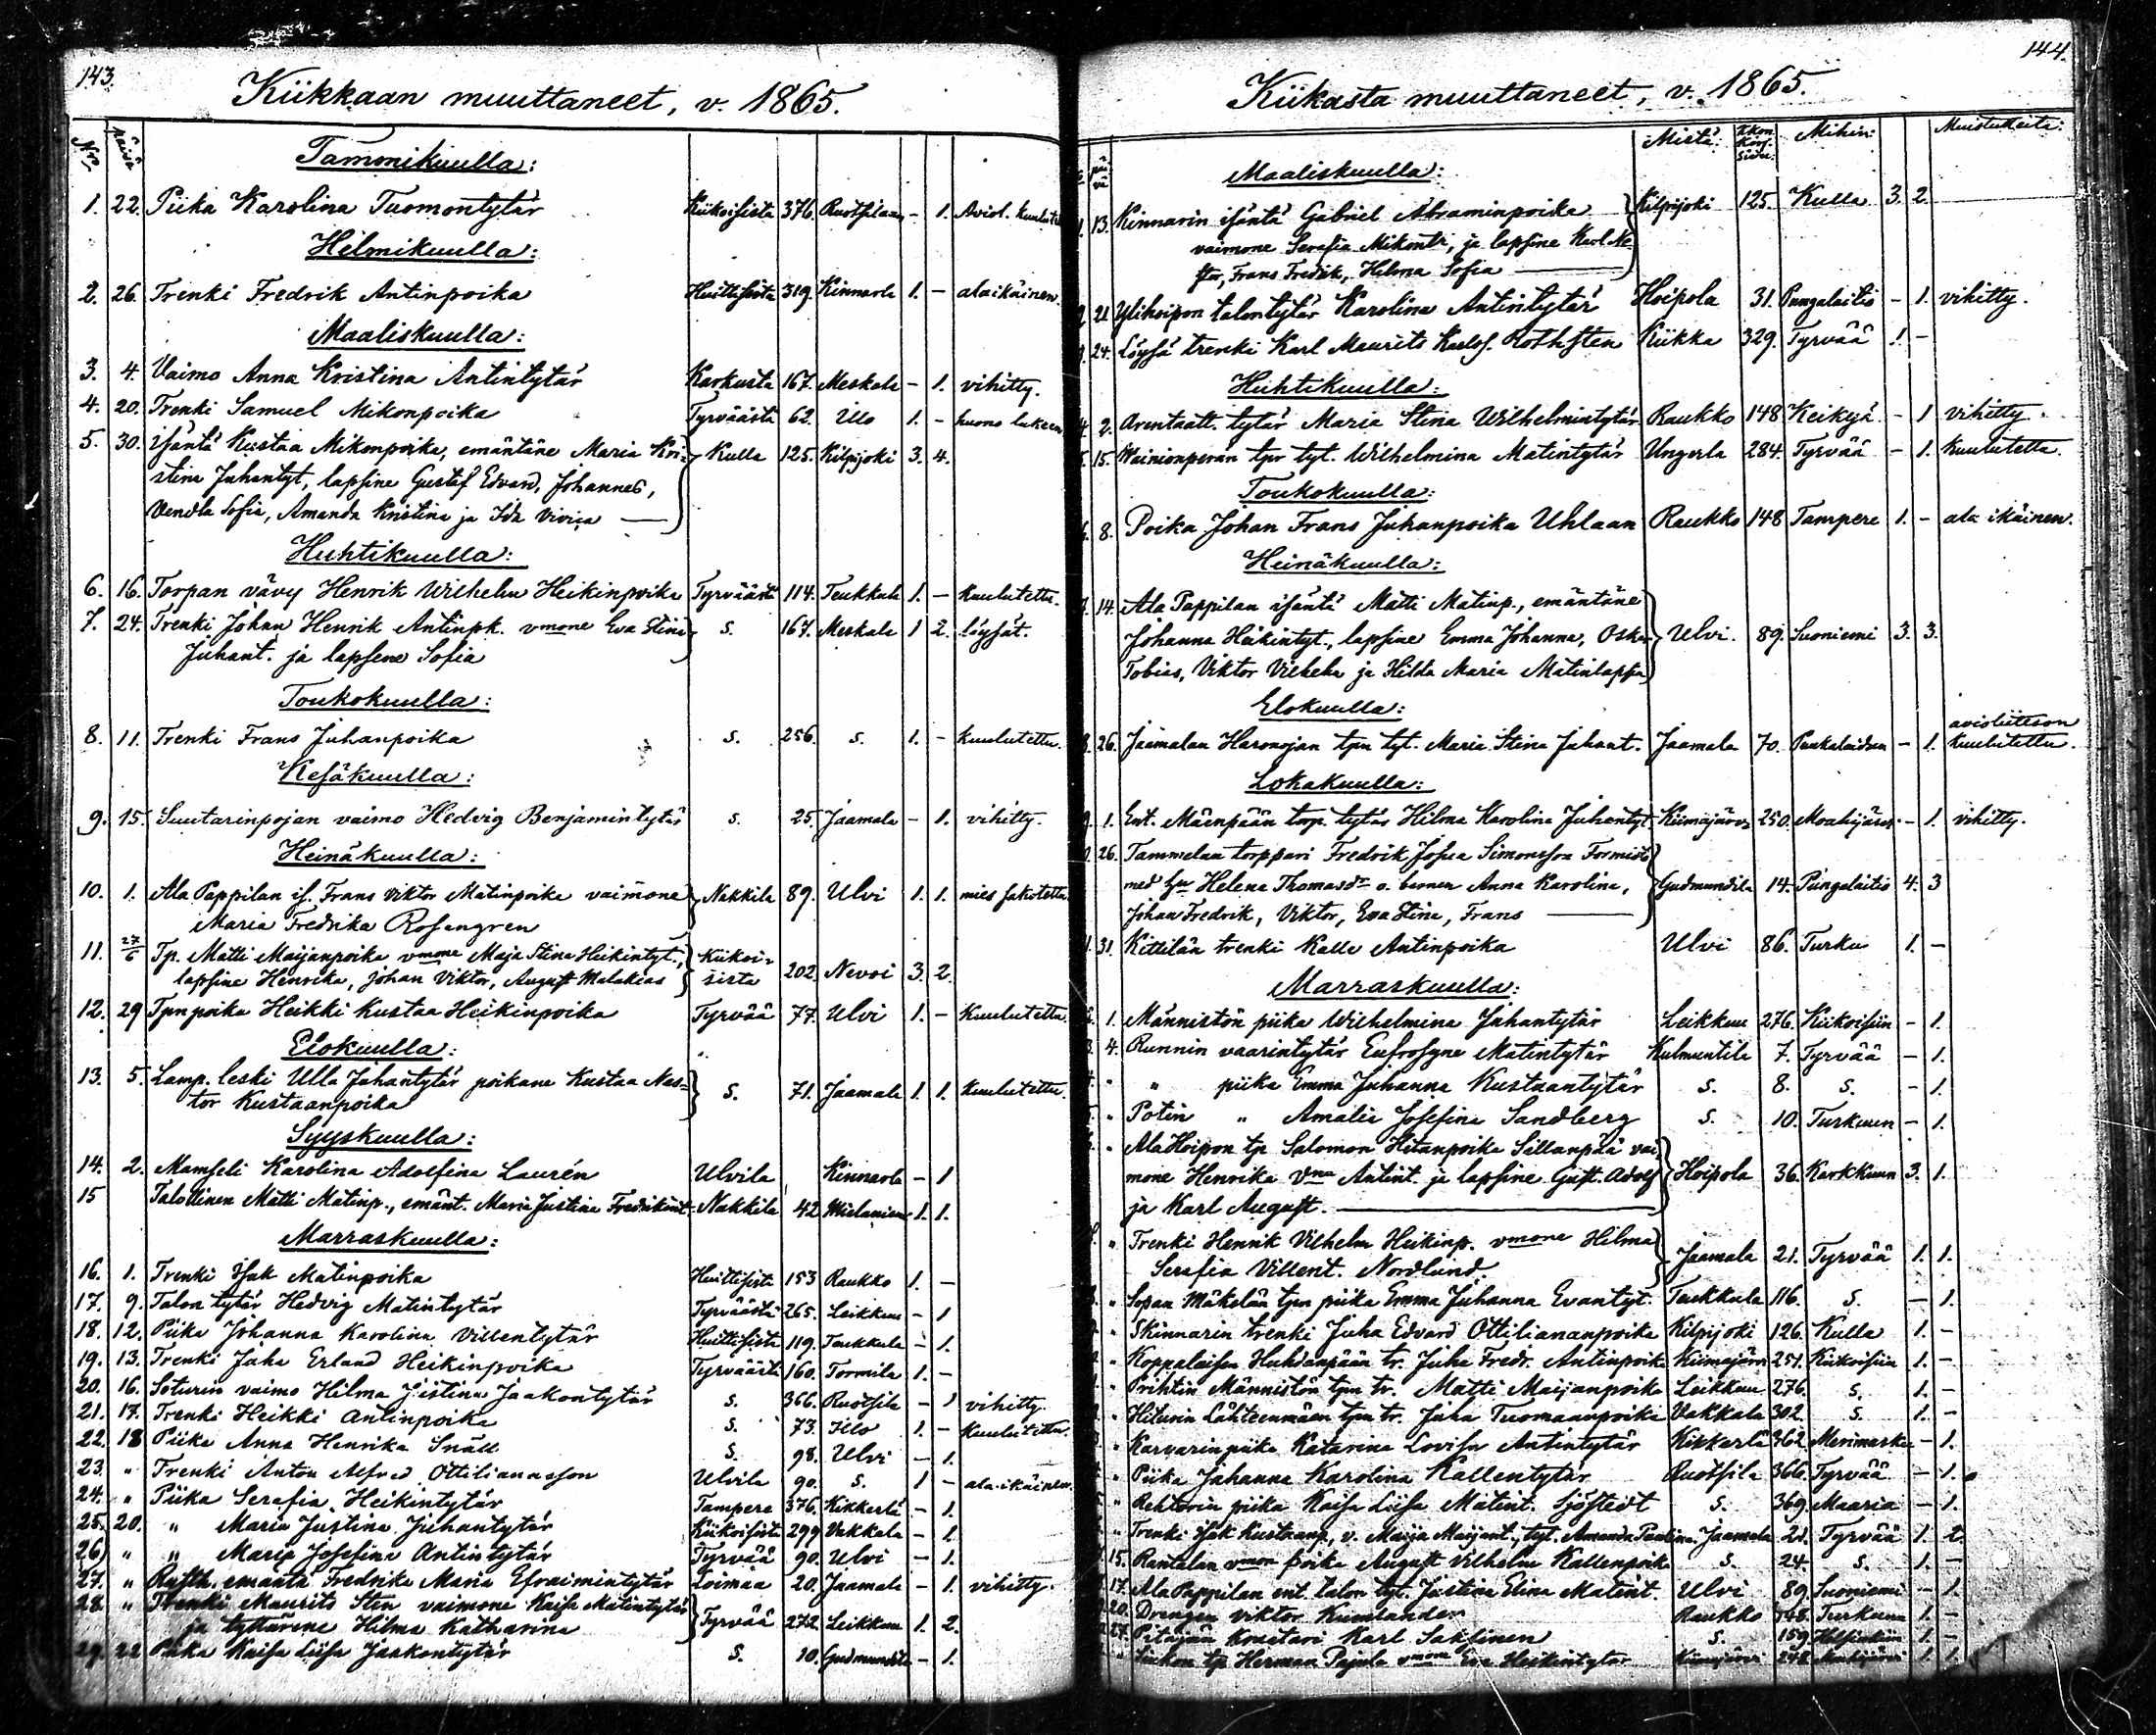 143.
Kiikkaan muuttaneet, v. 1865.
Nro Päivä
Tammikuulla:
1. 22. Piika Karolina Tuomontytär Kiikoisista 376. Ruotsilaan - 1. Aviol. kuulut
Helmikuulla:
2. 26. Trenki Fredrik Antinpoika Huittisista 319. Kinnarla 1. - alaikäinen.
Maaliskuulla:
3. 4. Vaimo Anna Kristina Antintytär Karkusta 167. Meskala - 1. vihitty.
4. 20. Trenki Samuel Mikonpoika Tyrväästä 62. Illo 1. - huono lukeen
5. 30. isäntä Kustaa Mikonpoika, emäntäne Maria Kri- Kulla 125. Kilpijoki 3. 4.
stina Juhantyt, lapsine Gustaf Edvard, Johannes,
Vendla Sofia, Amanda Kristina ja Ida Vivica
Huhtikuulla:
6. 16. Torpan vävy Henrik Wilhelm Heikinpoika Tyrväästä 114. Teukkala 1. - kuulutettu.
7. 24. Trenki Johan Henrik Antinpk. vmone Eva Stina s. 167. Meskala 1 2. löysät.
Juhant. ja lapsene Sofia
Toukokuulla:
8. 11. Trenki Frans Juhanpoika s. 256. s. 1. - kuulutettu.
Kesäkuulla:
9. 15. Suutarinpojan vaimo Hedvig Benjamintytär s. 25. Jaamala - 1. vihitty.
Heinäkuulla:
10. 1. Ala Pappilan is. Frans Viktor Matinpoika vaimone Nakkila 89. Ulvi 1. 1. mies jakotettu
Maria Fredrika Rosengren
11. 27/6 Tp. Matti Maijanpoika vmone Maja Stina Heikintyt., Kiikoi-
lapsine Henrika, Johan Viktor, August Malakias sista 202. Nevoi 3. 2.
12. 29 Tpn poika Heikki Kustaa Heikinpoika Tyrvää 77. Ulvi 1. - Kuulutettu
Elokuulla:
13. 5. Lamp. leski Ulla Juhantytär poikane Kustaa Nes- s. 71. Jaamala 1. 1. kuulutettu.
tor Kustaanpoika
Syyskuulla:
14. 2. Mamseli Karolina Adolfina Laurén Ulvila Kinnarla - 1
15 Talollinen Matti Matinp., emänt. Maria Justina Fredrikint. Nakkila 42 1. 1.
Marraskuulla:
16. 1. Trenki Isak Matinpoika Huittisista 153 Raukko 1. -
17. 9. Talon tytär Hedvig Matintytär Tyrväästä 265. Leikkuu - 1
18. 12. Piika Johanna Karolina Villentytär Huittisista 119. Teukkala - 1.
19. 13. Trenki Juha Erland Heikinpoika Tyrväästä 160. Tormila 1. -
20. 16. Soturin vaimo Hilma Justina Jaakontytär s. 366. Ruotsila - 1 vihitty.
21. 17. Trenki Heikki Antinpoika s. 73. Illo 1. - Kuulutettu.
22. 18 Piika Anna Henrika Snäll s. 98. Ulvi - 1.
23. " Trenki Anton Alfred Ottilianasson Ulvila 90. s. 1 - ala-ikäinen.
24. " Piika Serafia Heikintytär Tampere 376. Kikkerlä - 1.
25. 20. " Maria Justina Juhantytär Kiikoisista 299 Vakkala - 1.
26. " " Maria Josefina Antintytär Tyrvää 90. Ulvi - 1.
27. " Rusth. emäntä Fredrika Maria Efraimintytär Loimaa 20. Jaamala - 1. vihitty.
28. " Trenki Maurits Sten vaimone Kaisa Matintytär Tyrvää 272. Leikkuu 1. 2.
ja tyttärene Hilma Katharina
29. 22 Piika Kaisa Liisa Jaakontytär s. 10. Gudmundila - 1.
144.
Kiikasta muuttaneet, v. 1865.
päivä Mistä: Kkon. kirj. sivu. Mihin: Muistutteita:
Maaliskuulla:
1. 13. Kinnarin isäntä Gabriel Abraminpoika Kilpijoki 125. Kulla 3. 2.
vaimone Serafia Mikontr, ja lapsine Karl Ne-
stor, Frans Fredrik, Hilma Sofia
2. 21 Ylihoipon talontytär Karolina Antintytär Hoipola 31. Pungalaitio - 1. vihitty.
3. 24. Löysä trenki Karl Maurits Karlss. Rothsten Kiikka 329. Tyrvää 1. -
Huhtikuulla:
4. 2. Arentaatt. tytär Maria Stina Wilhelmintytär Raukko 148 Keikyä - 1 vihitty.
5. 15. Wainionperän tpr tyt. Wilhelmina Matintytär Ungerla 284. Tyrvää - 1. kuulutettu.
Toukokuulla:
6. 8. Poika Johan Frans Juhanpoika Uhlaan Raukko 148 Tampere 1. - ala ikäinen.
Heinäkuulla:
7. 14. Ala Pappilan isäntä Matti Matinp., emäntäne
Johanna Heikintyt., lapsine Emma Johanna, Oskar Ulvi. 89. Suoniemi 3. 3.
Tobias, Viktor Vilhelm ja Hilda Maria Matinlapsia
Elokuulla:
avioliittoon
8. 26. Jaamalan Haronojan tpn tyt. Maria Stina Juhant. Jaamala 70. Punkalaidun - 1. kuulutettu.
Lokakuulla:
9. 1. Ent. Mäenpään torp. tytär Hilma Karolina Juhantyt. Kiimajärvi 250. Mouhijärvi - 1. vihitty.
0. 26. Tammelan torppari Fredrik Josua Simonsson Formist
med hu Helena Thomasdr o. barnen Anna Karolina, Gudmundila 14. Pungalaitio 4. 3
Johan Fredrik, Viktor, Eva Stina, Frans
1. 31. Kittilän trenki Kalle Antinpoika Ulvi 86. Turku 1. -
Marraskuulla:
2. 1. Männistön piika Wilhelmina Juhantytär Leikkuu 276. Kiikoisiin - 1.
3. 4. Runnin vaarintytär Eufrosyne Matintytär Kulmuntila 7. Tyrvää - 1.
" " piika Emma Juhanna Kustaantytär s. 8. s. - 1.
" Potin " Amalia Josefina Sandberg s. 10. Turkuun - 1.
" Ala Hoipon tp Salomon Hitanpoika Sillanpää vai-
mone Henrika Vma Antint. ja lapsine Gust. Adolf Hoipola 36. Karkkuun 3. 1.
ja Karl August.
" Trenki Henrik Vilhelm Heikinp. vmone Hilma Jaamala 21. Tyrvää 1. 1.
Serafia Villent. Nordlund.
" Sopan Mäkelän tpn piika Emma Juhanna Evantyt. Teukkala 116. s. - 1.
" Skinnarin trenki Juha Edvard Ottiliananpoika Kilpijoki 126. Kulla 1. -
" Koppalaisen Huhdanpään tr. Juha Fredr. Antinpoika Kiimajärvi 251. Kiikoisiin 1. -
" Prihtin Männistön tpn tr. Matti Maijanpoika Leikkuu 276. s. 1. -
" Hiturin Lähteenmäen tpn tr. Juha Tuomaanpoika Vakkala 302. s. 1. -
" Karvarin piika Katarina Lovisa Antintytär Kikkerlä 362 Merimasku - 1.
" Piika Johanna Karolina Kallentytär Ruotsila 366. Tyrvää - 1.
" Rehtorin piika Kaisa Liisa Matint. Sjöstedt s. 369. Maaria - 1.
" Trenki Isak Kustaanp., v. Maija Maijant., tyt. Amanda Paulina Jaamala 21. Tyrvää 1. 2.
15. Rantalan vmon poika August Vilhelm Kallenpoika s. 24. s. 1. -
17. Ala Pappilan ent. talon tyt. Justina Elina Matint. Ulvi 89 Suoniemi - 1.
20. Drengen Viktor Kumlander Raukko 148. Turkuun 1. -
27. Pitäjän kraatari Karl Saksinen s. 159. Helsinkiin 1. -
tp Herman Pajula vmone Eva Heikintytär Kiimajärvi 248. Mouhijärvi 1. 1.